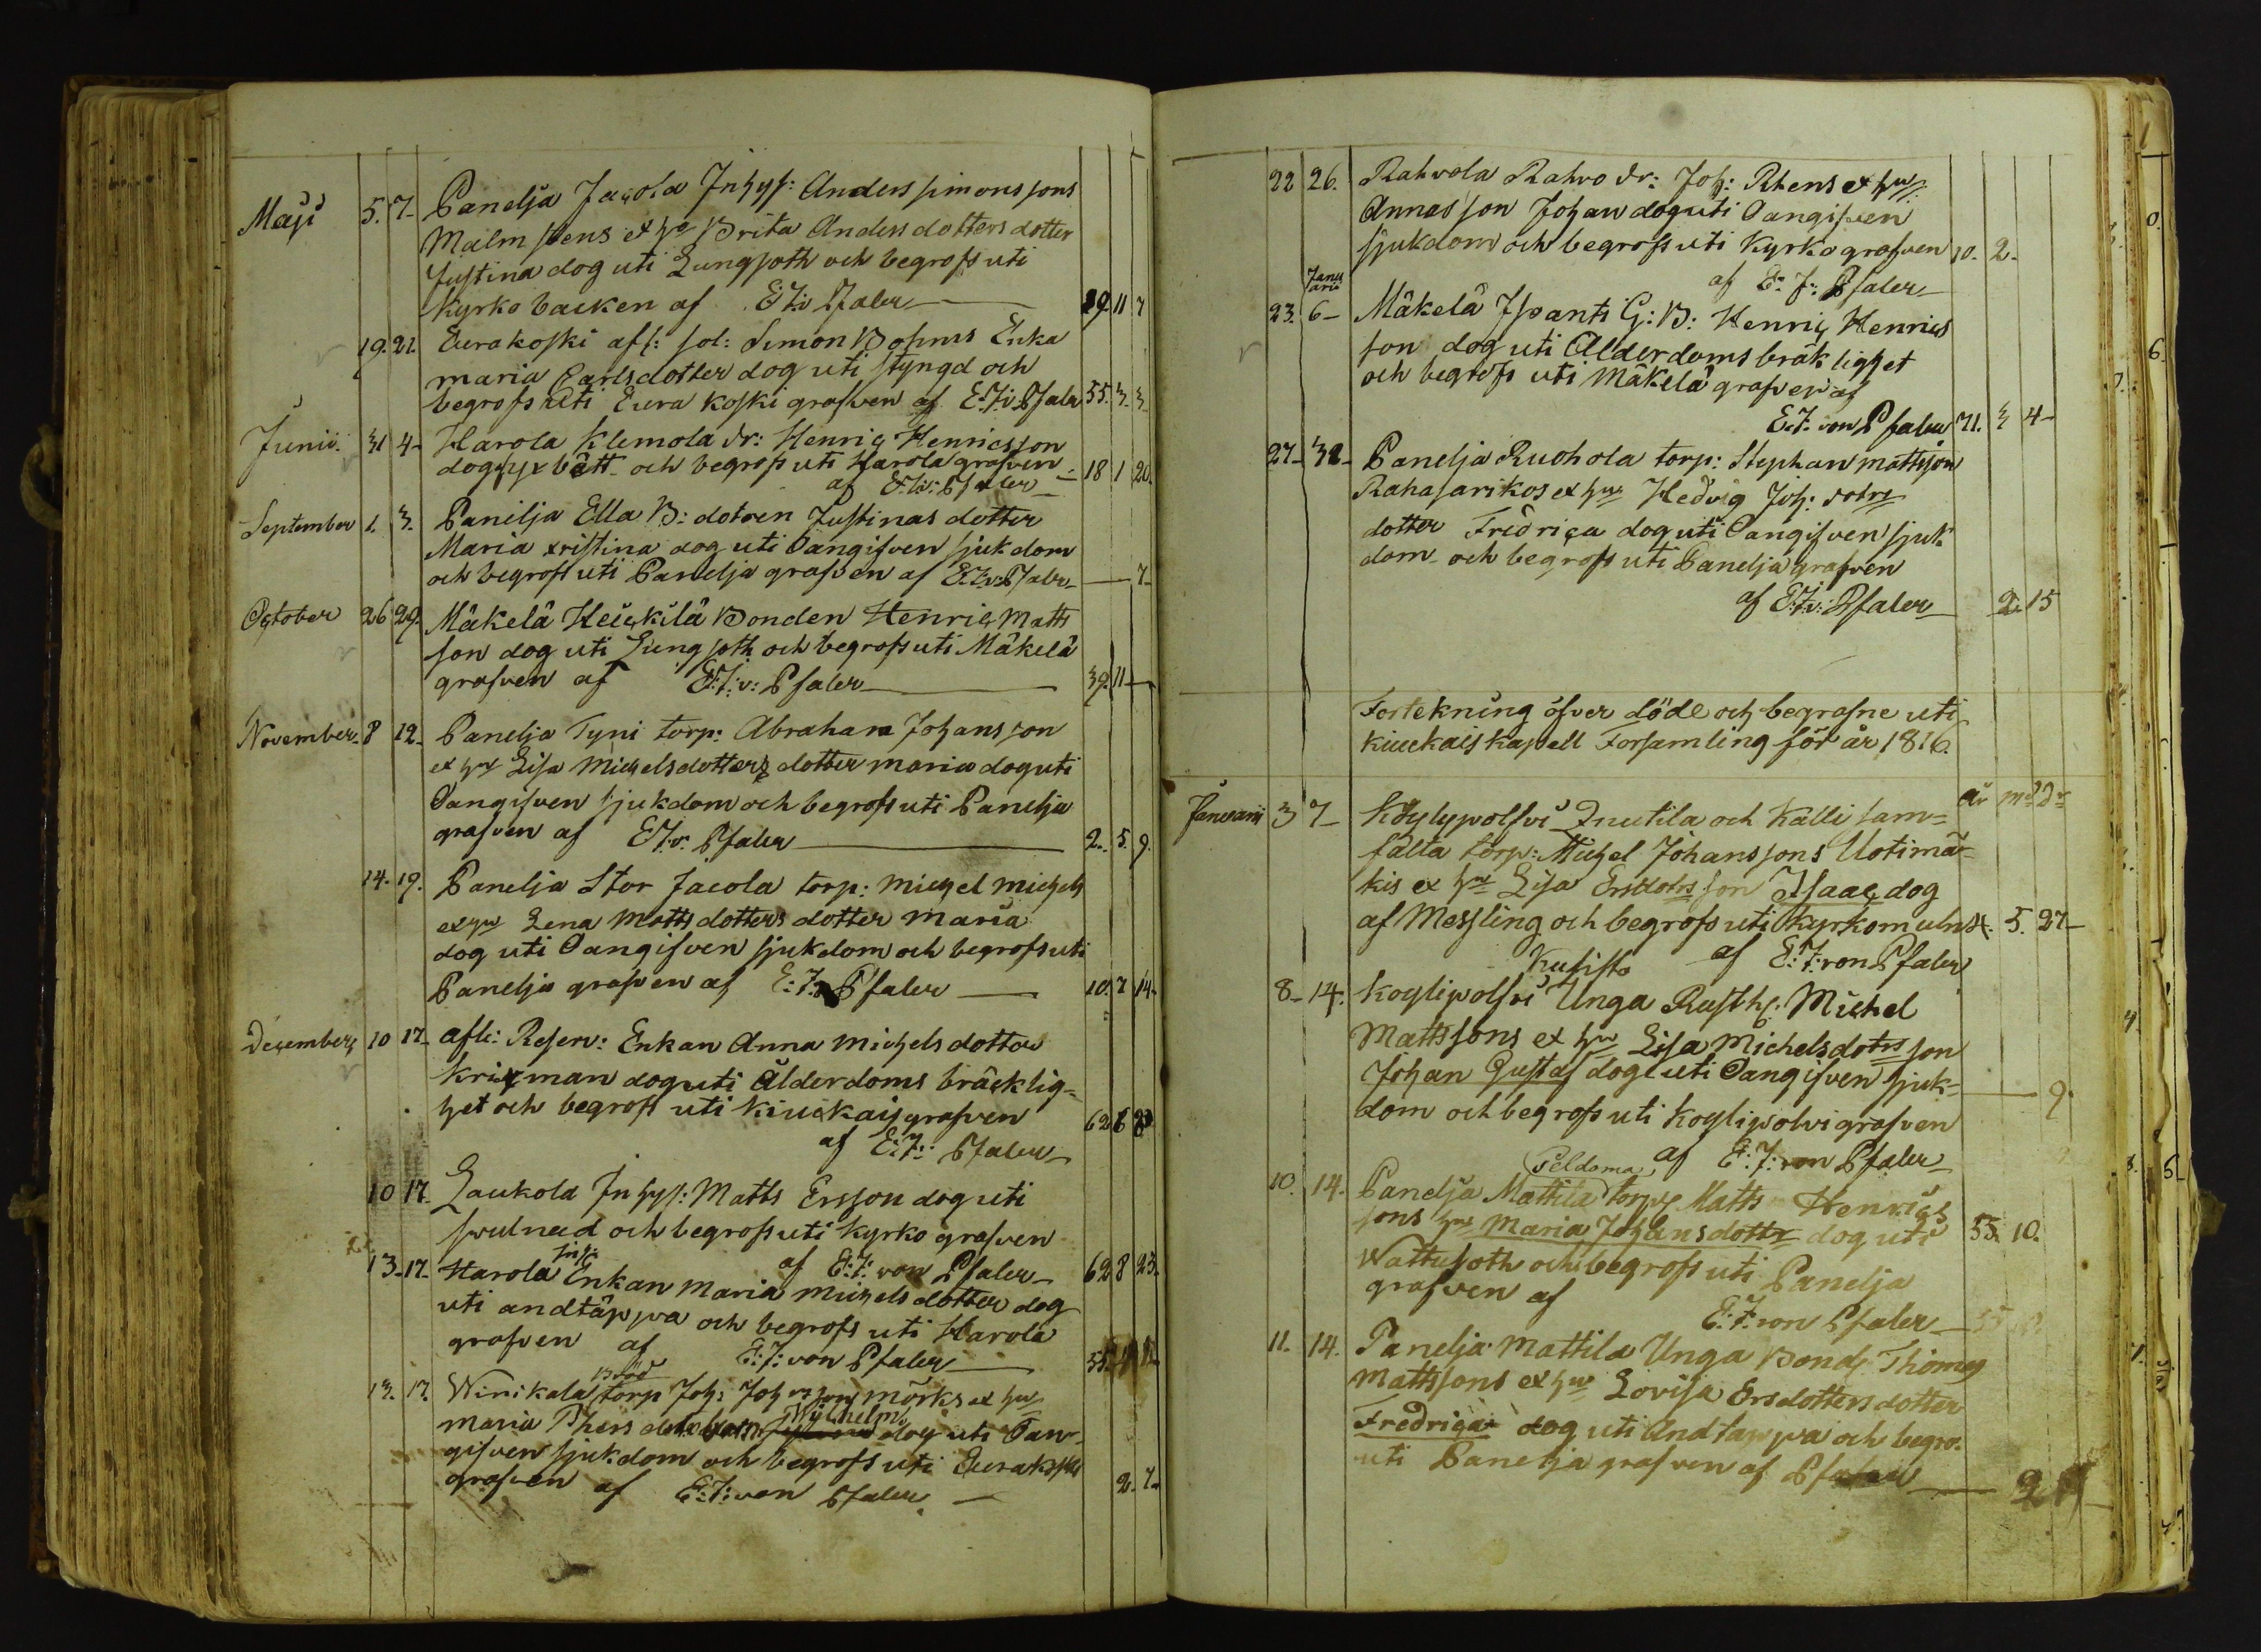 Maji 5. 7. Panelja Jacola Inhys: Anders Simonssons
Malmstens et h: Brita Andersdotters dotter
Justina dog uti Lungsoth och begrofs uti
Kyrko backen af E:J:v Pfaler 29. 11 7
19. 21. Eurakoski afl: sol: Simon Bohms Enka
maria Carlsdotter dog uti styngd och
begrofs uti Eura koski grafven af E:J:v Pfaler 55. 3. 3
Junii 31 4 Harola Klemola dr: Henric Henricsson
och begrofs uti Harola grafven 18 1 20.
af E:J:v: Pfaler
September 1. 3. Panilja Ella B: dotren Justinas dotter
Maria xristina dog uti Oangifven sjukdom
och begrofs uti Panelja grafven af E:J:v: Pfaler 7
October 26 29. Mäkelä Heickilä Bonden Henric Matts
son dog uti Lungsoth och begrofs uti Mäkelä
grafven af E:J:v: Pfaler 39. 11
November 8 12 Panelja Tyni torp: Abraham Johansson
et hu Lisa Michelsdotters dotter maria dog uti
Oangifven sjukdom och begrofs uti Panelja
grafven af E:J:v. Pfaler 2. 5. 9.
14. 19. Panelja Stor Jacola torp: Michel Michels
ex hu Lena Mattsdotters dotter Maria
dog uti Oangifven sjukdom och begrofs uti
Panelja grafven af E:J: Pfaler 10. 7 14
December 10 17 afli: Reserv: Enkan Anna Michelsdotter
Krixman dog uti Ålderdoms bräcklig=
het och begrofs uti Kiuckais grafven 62 8
af E:J: Pfaler
10 17. Laukola Inhys: Matts Ersson dog uti
swulnad och begrofs uti Kyrko grafven
af E:J: von Pfaler 62 8 23
13. 17. Harola Enkan Maria Michelsdotter dog
uti andtäppa och begrofs uti Harola
grafven af E:J: von Pfaler 55
13. 17. Winikala torp Joh: Johanssons Mörks et hu
maria Thers Wilhelm dog uti Oan
gifven sjukdom och begrofs uti Eurakoski
grafven af E:J: von Pfaler 2. 7
22 26. Rahvola Rahvo dr: Joh: Rhens et hu
Annas son Johan dog uti Oangifven
sjukdom och begrofs uti Kyrko grafven 10. 2
af E: J: Pfaler
Janu
arii
23. 6 Mäkelä Ispanti G: B: Henric Henrics
son dog uti Ålderdoms bräklighet
och begrofs uti Mäkelä grafven af
E:J: von Pfaler 71. 3 4
27 Panelja Ruohola torp: Stephan Mattsson
Rahasarikos et hu Hedvig Joh: dotrs
dotter Fredrica dog uti Oangifven sjuk
dom och begrofs uti Panelja grafven
af E:J:v: Pfaler 2. 15
Fortekning öfver döde och begrafne uti
kiuckais kapell Forsamling för år 1816.
år md dr
Januarii 3 7 Köylypolfvi Inutila och Källi sam=
fälta torp: Michel Johanssons Uotimä
kis ex hu Lisa Ersdotrs son Isaac dog
af Messling och begrofs uti Kyrkomuln 5. 27
af E:J: von Pfaler
Kuhisto
8 14. Koylipolfvi Unga Rusth: Michel
Mattssons ex hu Lisa Michelsdotrs son
Johan Gustaf dog uti Oangifven sjuk=
dom och begrofs uti Koylipolvi grafven 9.
af E:J: von Pfaler
Peldoma
10. 14. Panelja Mattila torp: Matts Henrics
sons hu Maria Johansdottr dog uti 55. 10.
Wattusoth och begrofs uti Panelja
grafven af
E:J: von Pfaler
11. 14. Panelja Mattila Unga Bond: Thomas
Mattssons et hu Lovisa Ersdotters dotter
Fredrica dog uti Andtäppa och begro.
uti Panelja grafven af Pfaler 2